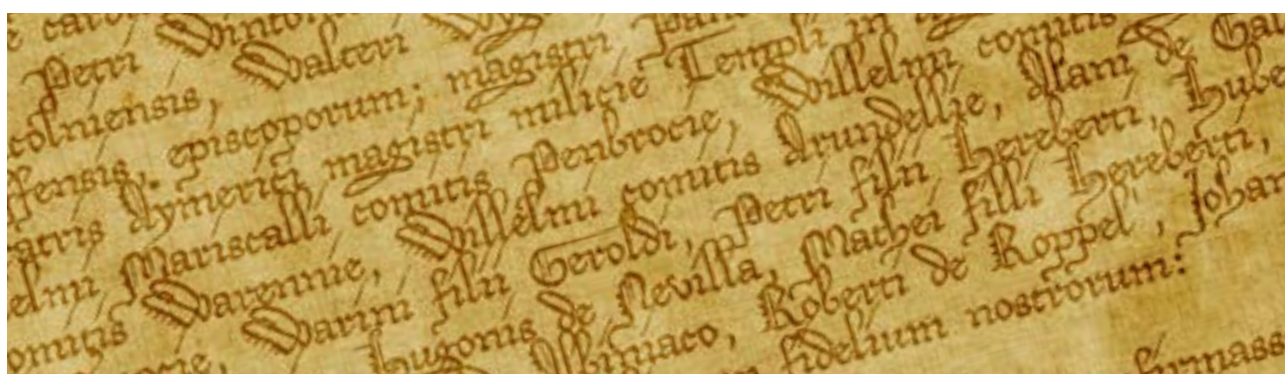 Petri
colniensis, Walteri
ffensis, episcoporum; magistri Pan
atris Aymerici magistri milicie Templi in
elmi Mariscalli comitis Penbrocie, Willelmi comitis
omitis Warennie, Willelmi comitis Arundellie, Alani de Gal
cie, Warini filii Geroldi, Petri filii Hereberti, Hube
Hugonis de Nevilla, Mathei filii Hereberti,
Albiniaco, Roberti de Roppel', Johan
fidelium nostrorum:
firmass